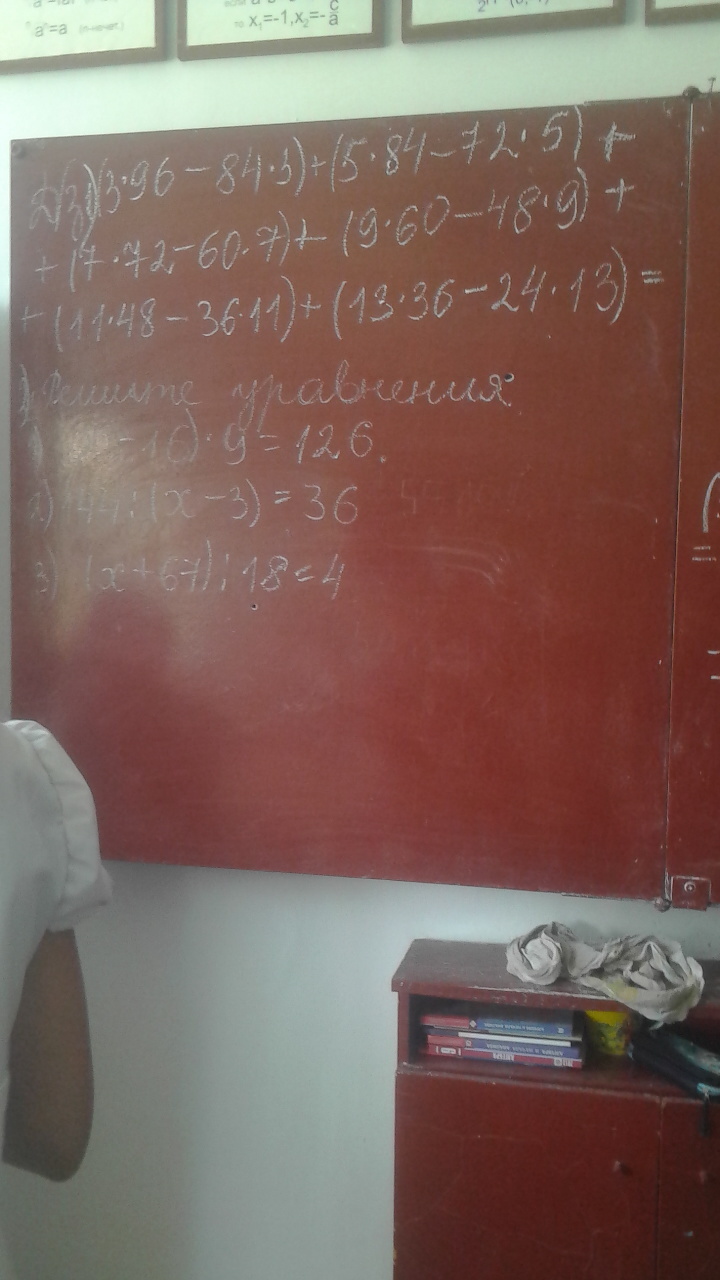 если
то x₁=-1, x₂=-c/a
aⁿ=a
Д/з 1) (3·96-84·3)+(5·84-72·5)+
+(7·72-60·7)+(9·60-48·9)+
+(11·48-36·11)+(13·36-24·13)=
Решите уравнения:
-16)·9=126.
2) 144:(x-3)=36
3) (x+67):18=4